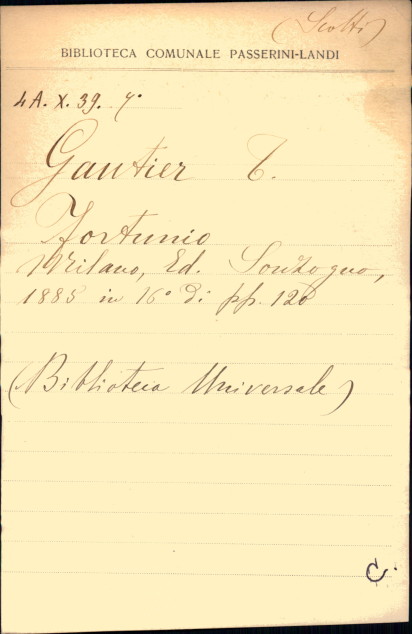 (Scotti)
BIBLIOTECA COMUNALE PASSERINI-LANDI
4A. X. 39. 7°
Gautier T.
Fortunio
Milano, Ed. Sonzogno,
1885 in 16° di pp. 120
(Biblioteca Universale)
C.